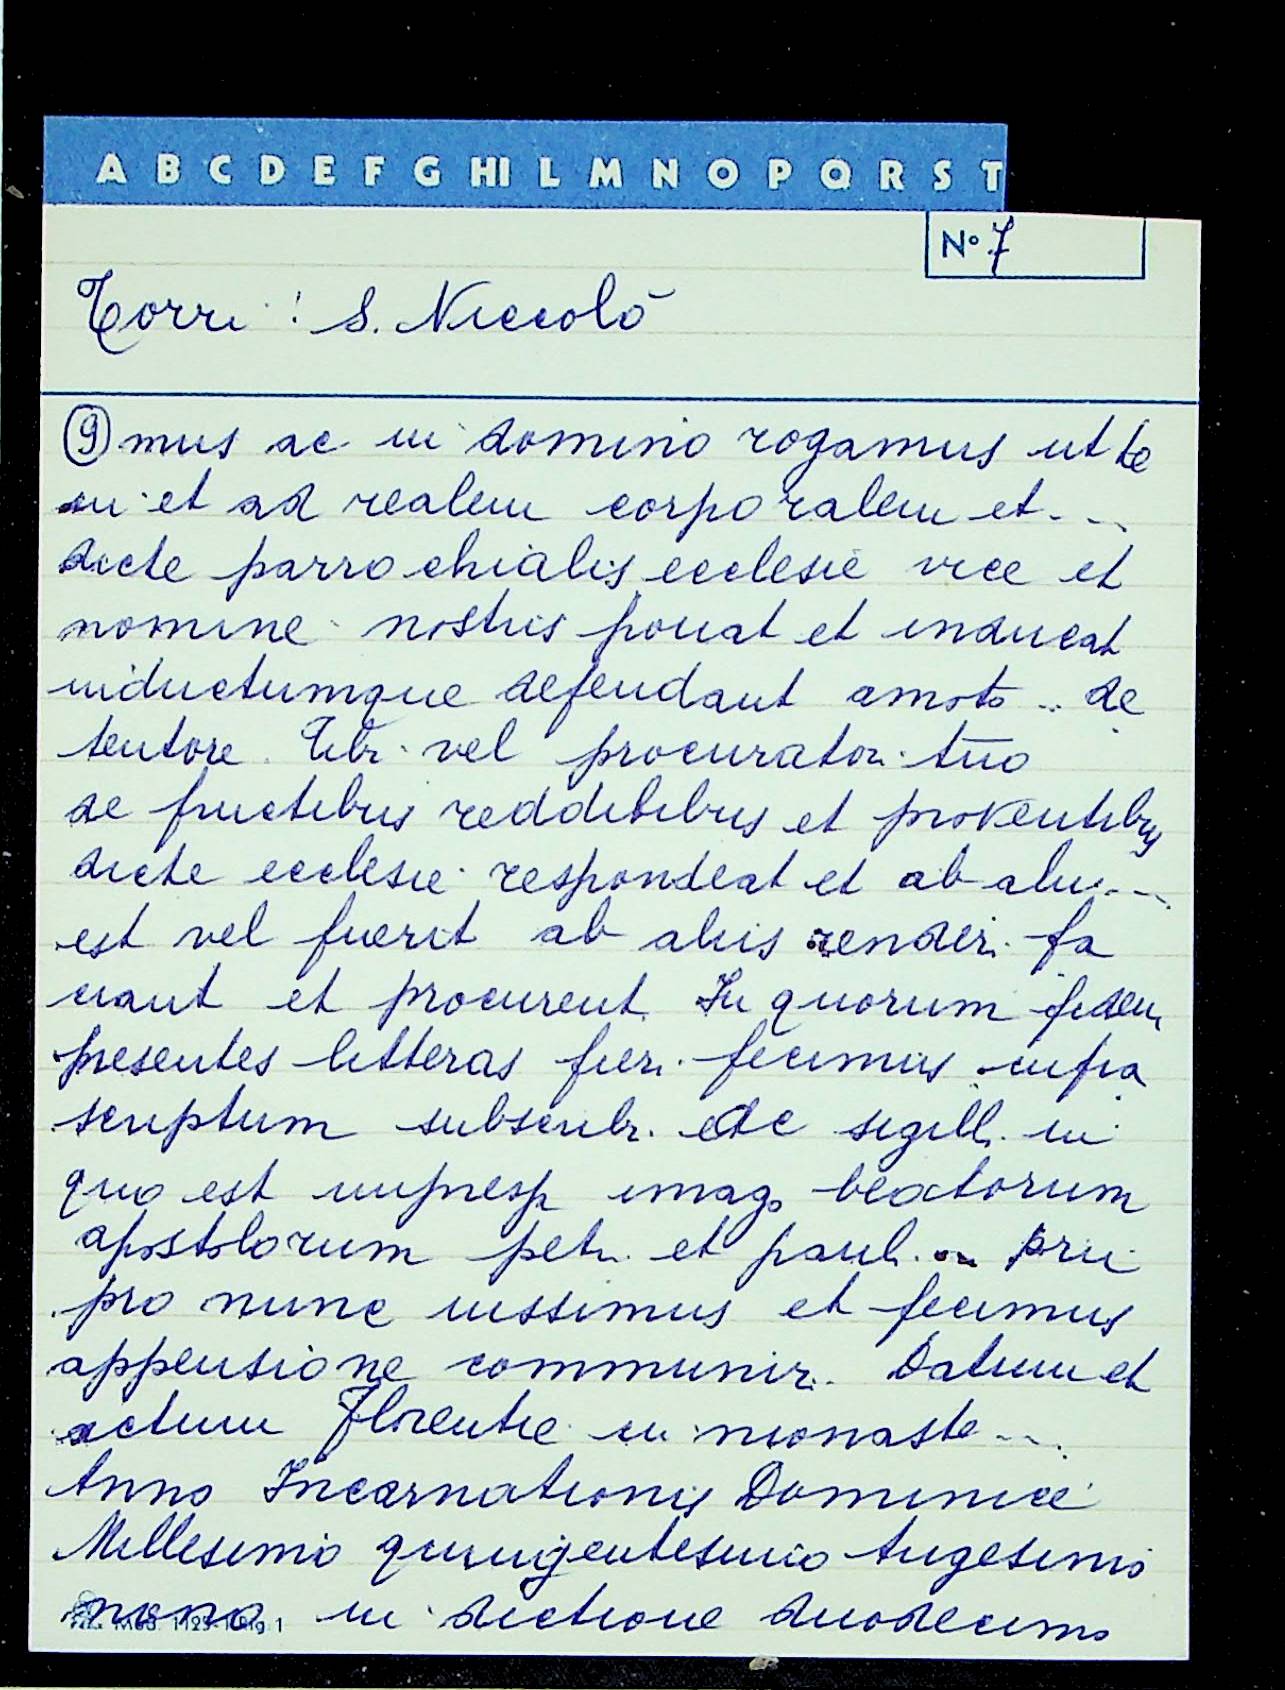 A B C D E F G HI L M N O P Q R S T
N° 7
Torri : S. Niccolò
9 mus ac in domino rogamus ut te
in et ad realem corporalem et...
dicte parrochialis ecclesie vice et
nomine nostris ponat et inducat
inductumque defendant amoto .. de
tentore. Tibi vel procuratori tuo
de fructibus redditibus et proventibus
dicte ecclesie respondeat et ab alii...
est vel fuerit ab aliis renderi fa
ciant et procurent In quorum fidem
presentes litteras fieri fecimus infra
scriptum subscribi. sigilli in
quo est impresp imago beatorum
apostolorum petri et pauli .. pri
pro nunc iussimus et fecimus
appensione communiri. Datum et
actum Florentie in monaste...
Anno Incarnationis Dominice
Millesimo quingentesimo trigesimo
nono in dictione duodecimo